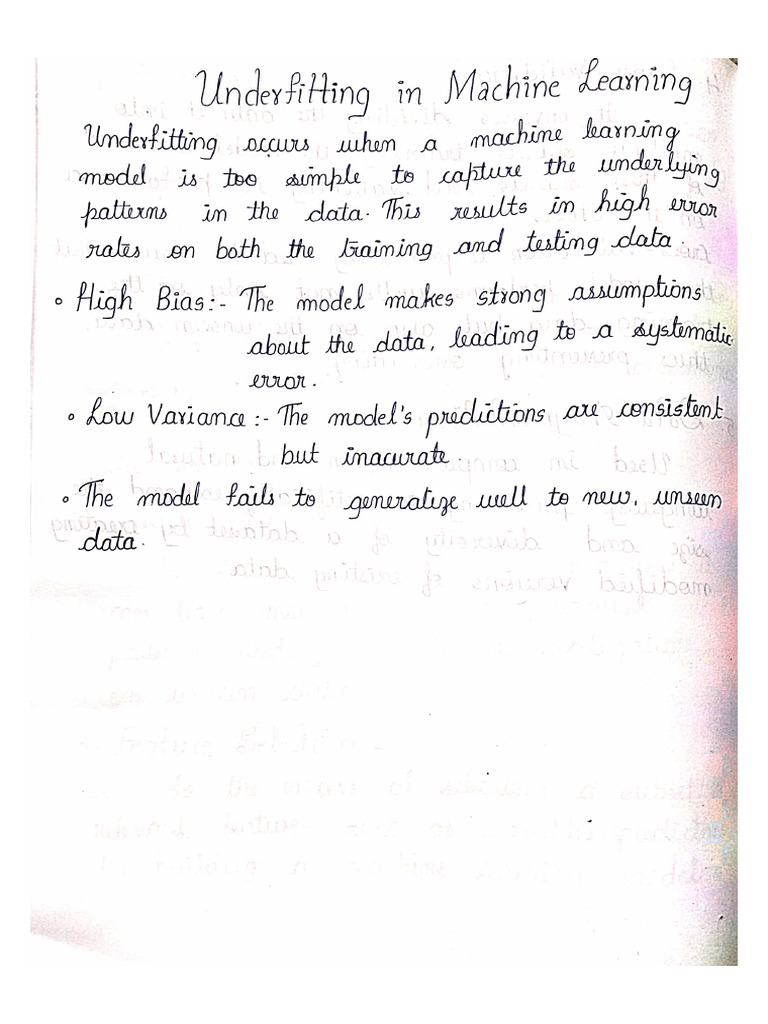 Underfitting in Machine Learning
Underfitting occurs when a machine learning
model is too simple to capture the underlying
patterns in the data. This results in high error
rates on both the training and testing data.
• High Bias:- The model makes strong assumptions
about the data, leading to a systematic
error.
• Low Variance:- The model's predictions are consistent
but inacurate.
• The model fails to generalize well to new, unseen
data.